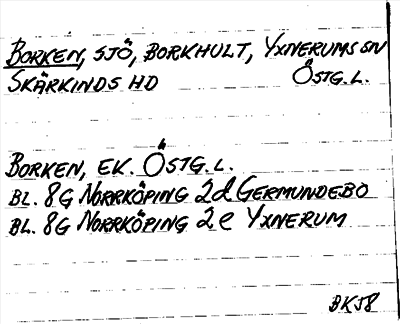 BORKEN, SJÖ, BORKHULT, YXNERUMS SN
SKÄRKINDS HD ÖSTG. L.
BORKEN, EK. ÖSTG. L.
BL. 8G NORRKÖPING 2d GERMUNDEBO
BL. 8G NORRKÖPING 2e YXNERUM
BKJ8